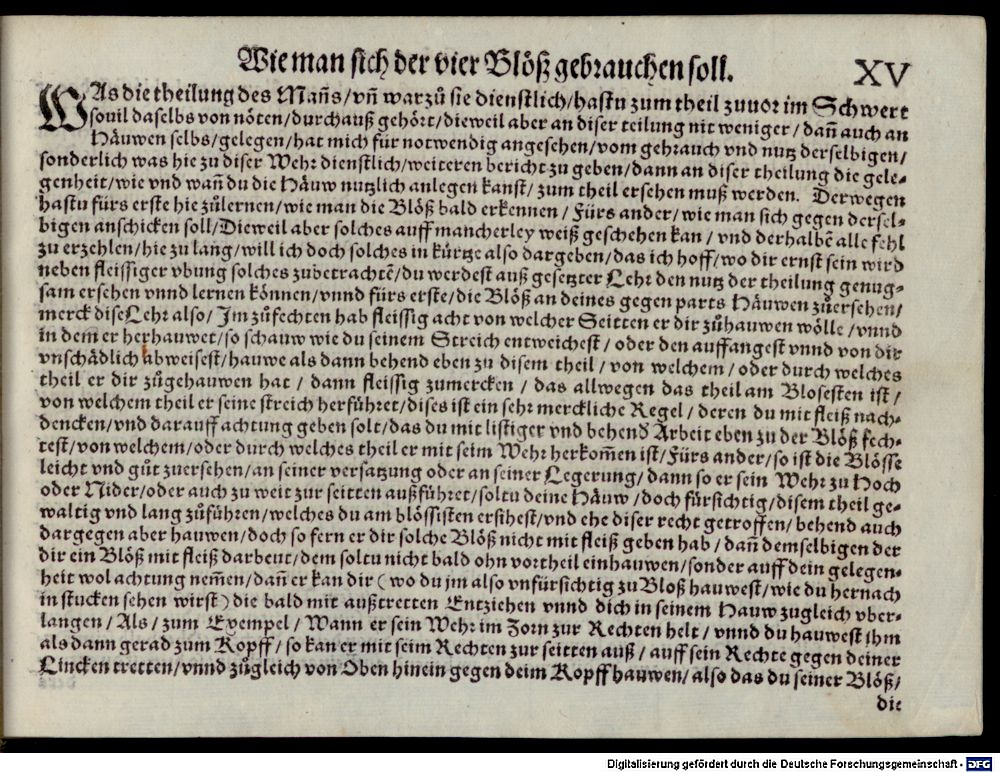 Wie man sich der vier Blöß gebrauchen soll.
XV
WAs die theilung des Mañs/vñ warzů sie dienstlich/hastu zum theil zuuor im Schwert
souil daselbs von nöten/durchauß gehört/dieweil aber an diser teilung nit weniger/dañ auch an
Häuwen selbs/gelegen/hat mich für notwendig angesehen/vom gebrauch vnd nutz derselbigen/
sonderlich was hie zu diser Wehr dienstlich/weiteren bericht zu geben/dann an diser theilung die gele-
genheit/wie vnd wañ du die Häuw nutzlich anlegen kanst/zum theil ersehen muß werden. Derwegen
hastu fürs erste hie zůlernen/wie man die Blöß bald erkennen/Fürs ander/wie man sich gegen dersel-
bigen anschicken soll/Dieweil aber solches auff mancherley weiß geschehen kan/vnd derhalbẽ alle fehl
zu erzehlen/hie zu lang/will ich doch solches in kürtze also dargeben/das ich hoff/wo dir ernst sein wird
neben fleissiger vbung solches zubetrachtẽ/du werdest auß gesetzter Lehr den nutz der theilung genug-
sam ersehen vnnd lernen können/vnnd fürs erste/die Blöß an deines gegen parts Häuwen zůersehen/
merck dise Lehr also/Im zůfechten hab fleissig acht von welcher Seitten er dir zůhauwen wölle/vnnd
in dem er herhauwet/so schauw wie du seinem Streich entweichest/oder den auffangest vnnd von dir
vnschädlich abweisest/hauwe als dann behend eben zu disem theil/von welchem/oder durch welches
theil er dir zůgehauwen hat/dann fleissig zumercken/das allwegen das theil am Blosesten ist/
von welchem theil er seine streich herführet/dises ist ein sehr merckliche Regel/deren du mit fleiß nach-
dencken/vnd darauff achtung geben solt/das du mit listiger vnd behend̃ Arbeit eben zu der Blöß fech-
test/von welchem/oder durch welches theil er mit seim Wehr herkom̃en ist/Fürs ander/so ist die Blösse
leicht vnd gůt zuersehen/an seiner versatzung oder an seiner Legerung/dann so er sein Wehr zu Hoch
oder Nider/oder auch zu weit zur seitten außführet/soltu deine Häuw/doch fürsichtig/disem theil ge-
waltig vnd lang zůführen/welches du am blössisten ersihest/vnd ehe diser recht getroffen/behend auch
dargegen aber hauwen/doch so fern er dir solche Blöß nicht mit fleiß geben hab/dañ demselbigen der
dir ein Blöß mit fleiß darbeut/dem soltu nicht bald ohn vortheil einhauwen/sonder auff dein gelegen-
heit wol achtung nem̃en/dañ er kan dir (wo du jm also vnfürsichtig zu Bloß hauwest/wie du hernach
in stucken sehen wirst) die bald mit außtretten Entziehen vnnd dich in seinem Hauw zugleich vber-
langen/Als/zum Exempel/Wann er sein Wehr im Zorn zur Rechten helt/vnnd du hauwest ihm
als dann gerad zum Kopff/so kan er mit seim Rechten zur seitten auß/auff sein Rechte gegen deiner
Lincken tretten/vnnd zůgleich von Oben hinein gegen deim Kopff hauwen/also das du seiner Blöß/
die
Digitalisierung gefördert durch die Deutsche Forschungsgemeinschaft - DFG